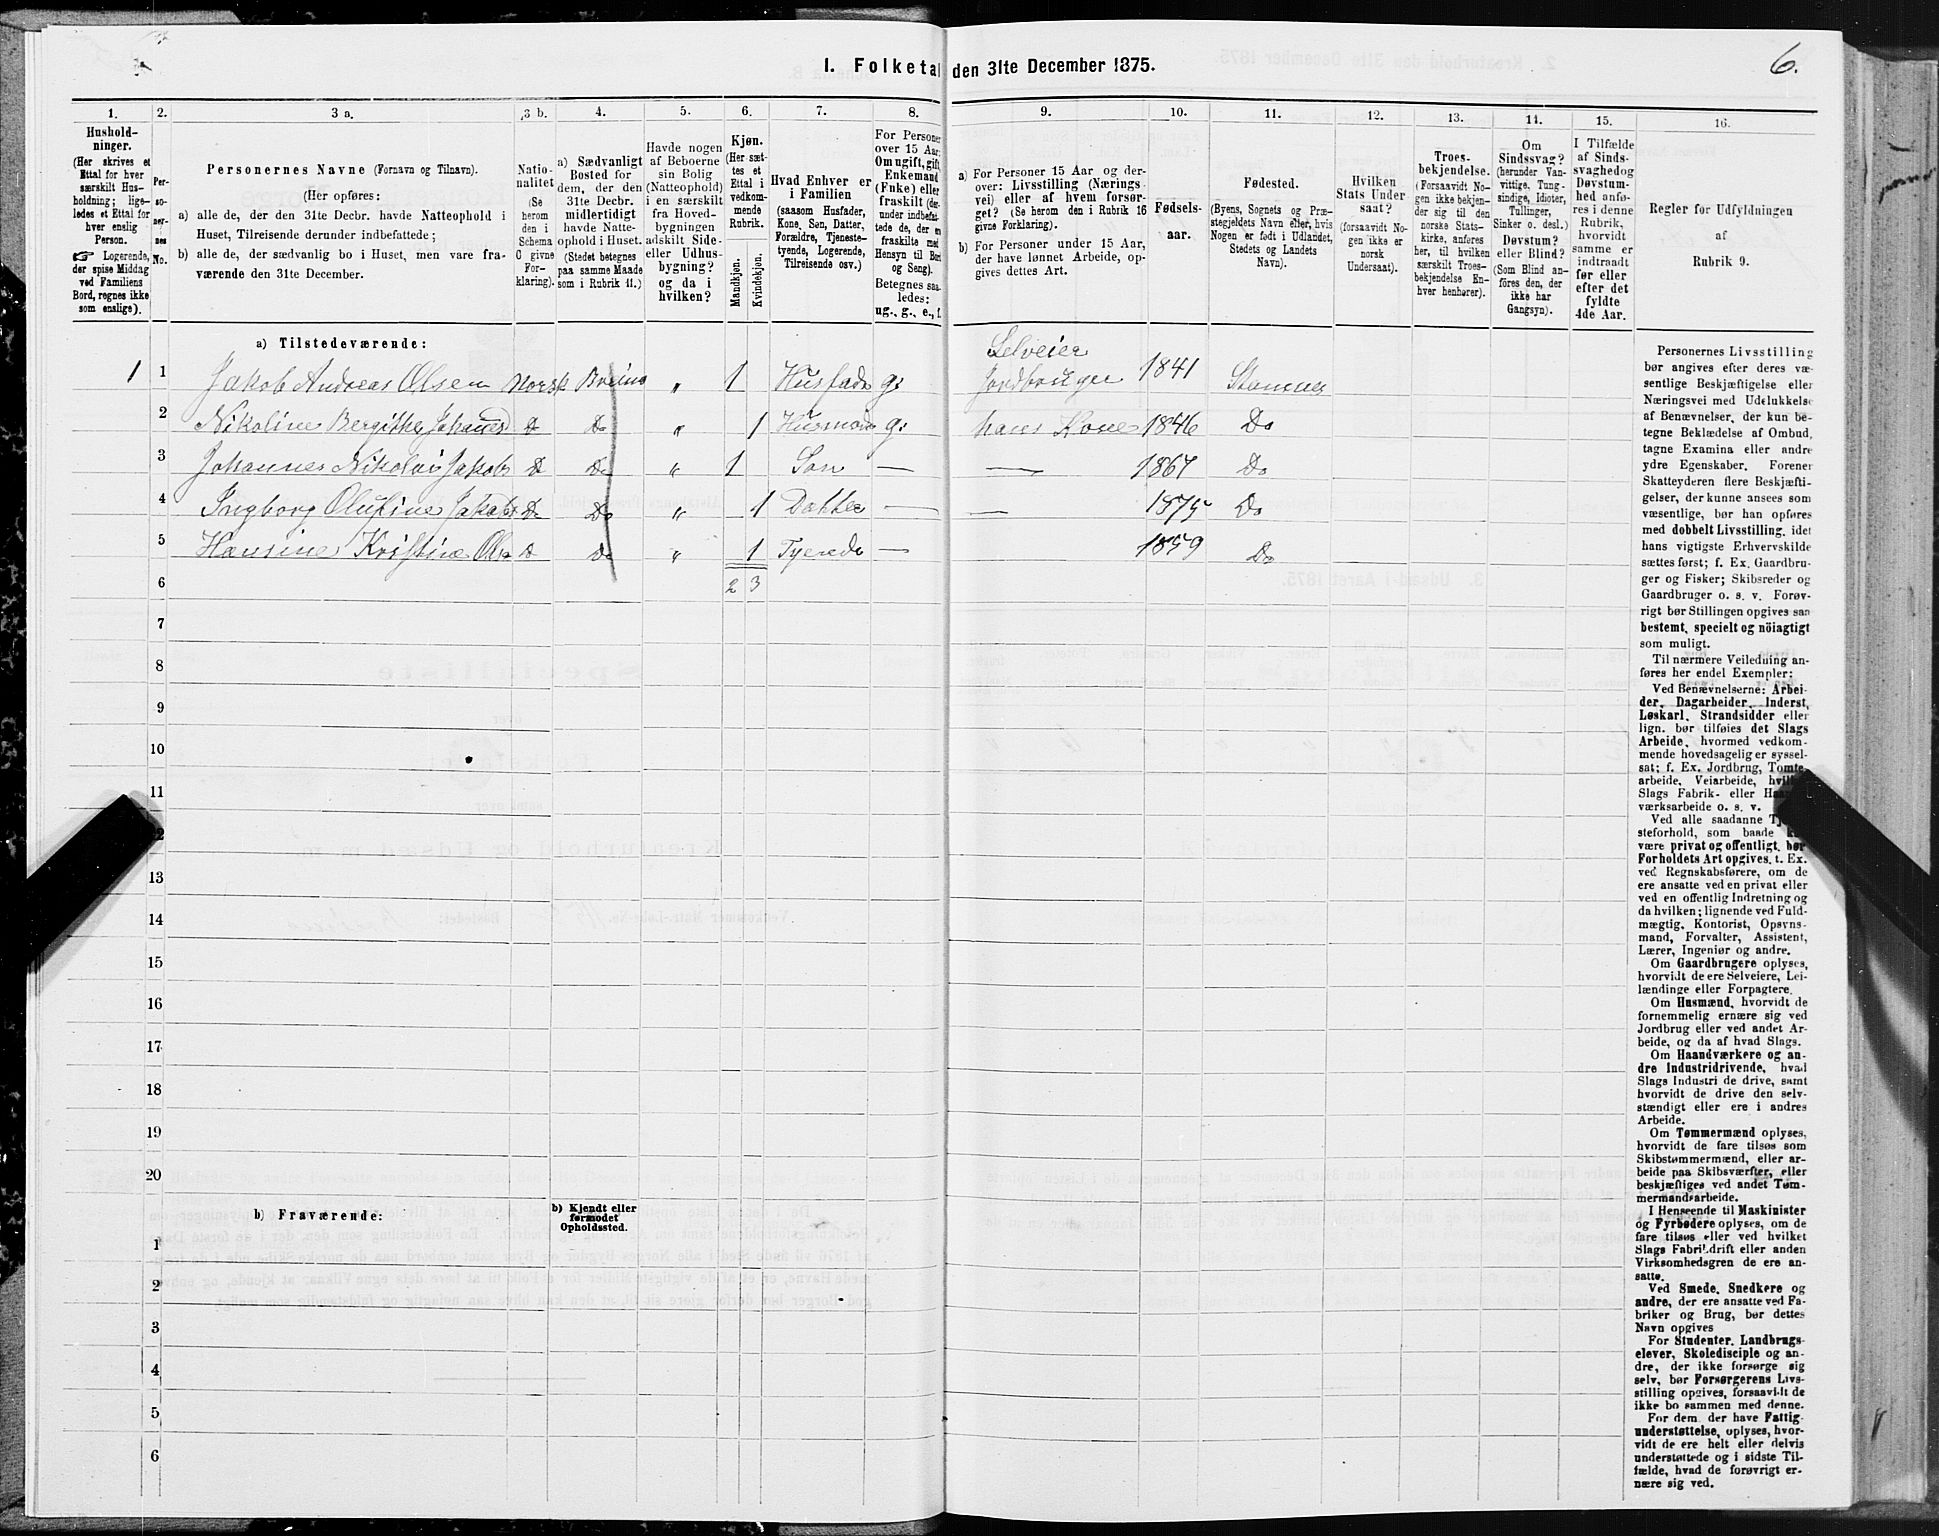 I. Folketal den 31te December 1875.
6.
1.
Hushold-
ninger.
(Her skrives et
Ettal for hver
særskilt Hus-
holdning; lige-
ledes et Ettal for
hver enslig
Person.
☞ Logerende,
der spise Middag
ved Familiens
Bord, regnes ikke
som enslige).
2.
Per-
so-
ner-
nes
No.
3 a.
Personernes Navne (Fornavn og Tilnavn).
(Her opføres:
a) alle de, der den 31te Decbr. havde Natteophold i
Huset, Tilreisende derunder indbefattede;
b) alle de, der sædvanlig bo i Huset, men vare fra-
værende den 31te December.
3 b.
Natio-
nalitet
(Se
herom
den i
Schema
C givne
For-
klaring).
4.
a) Sædvanligt
Bosted for
dem, der den
31te Decbr.
midlertidigt
havde Natte-
ophold i Huset.
(Stedet betegnes
paa samme Maade
som i Rubrik 11.)
5.
Havde nogen
af Beboerne
sin Bolig
(Natteophold)
i en særskilt
fra Hoved-
bygningen
adskilt Side-
eller Udhus-
bygning?
og da i
hvilken?
6.
Kjøn.
(Her sæt-
tes et
Ettal i
vedkom-
mende
Rubrik.
Mandkjøn.
Kvindekjøn.
7.
Hvad Enhver er
i Familien
(saasom Husfader,
Kone, Søn, Datter,
Forældre, Tjeneste-
tyende, Logerende,
Tilreisende osv.)
8.
For Personer
over 15 Aar:
Om ugift, gift,
Enkemand
(Enke) eller
fraskilt (der-
under indbefat-
tede de, der er
fraskilte med
Hensyn til Bord
og Seng).
Betegnes saa-
ledes:
ug., g., e., f.
9.
a) For Personer 15 Aar og der-
over: Livsstilling (Nærings-
vei) eller af hvem forsør-
get? (Se herom den i Rubrik 16
givne Forklaring).
b) For Personer under 15 Aar,
der have lønnet Arbeide, op-
gives dettes Art.
10.
Fødsels-
aar.
11.
Fødested.
(Byens, Sognets og Præ-
stegjeldets Navn eller, hvis
Nogen er født i Udlandet,
Stedets og Landets
Navn).
12.
Hvilken
Stats Under-
saat?
(forsaavidt No-
gen ikke er
norsk
Undersaat).
13.
Troes-
bekjendelse.
(Forsaavidt No-
gen ikke bekjen-
der sig til den
norske Stats-
kirke, anføres
her, til hvilken
særskilt Troes-
bekjendelse En-
hver henhører).
14.
Om
Sindssvag?
(herunder Van-
vittige, Tung-
sindige, Idioter,
Tullinger,
Sinker o. desl.)
Døvstum?
eller Blind?
(Som Blind an-
føres den, der
ikke har
Gangsyn).
15.
I Tilfælde
af Sinds-
svaghed og
Døvstum-
hed anfø-
res i denne
Rubrik,
hvorvidt
samme er
indtraadt
før eller
efter det
fyldte
4de Aar.
16.
Regler for Udfyldningen
af
Rubrik 9.
a) Tilstedeværende:
Selveier
1 1 Jakob Andreas Olsen Norsk „ 1 Husfader g: Jordbruger 1841 Stamnes
2 Nikoline Bergithe Johans D Do „ 1 Husmoder g: hans Kone 1846 Do
3 Johannes Nikolai Jakobs D Do „ 1 Søn — — 1867 Do
4 Ingborg Olufine Jakobs D Do „ 1 Datter — — 1875 Do
5 Hansine Kristine Ols D Do „ 1 — 1859 Do
6 2 3
7
8
9
10
11
12
13
14
15
16
17
18
19
20
b) Fraværende:
b) Kjendt eller
formodet
Opholdssted.
1
2
3
4
5
6
Personernes Livsstilling
bør angives efter deres væ-
sentlige Beskjæftigelse eller
Næringsvei med Udelukkelse
af Benævnelser, der kun be-
tegne Beklædelse af Ombud,
tagne Examina eller andre
ydre Egenskaber. Forener
Skatteyderen flere Beskjæfti-
gelser, der kunne ansees som
væsentlige, bør han opføres
med dobbelt Livsstilling, idet
hans vigtigste Erhvervskilde
sættes først; f. Ex. Gaardbru-
ger og Fisker; Skibsreder og
Gaardbruger o. s. v. Forøv-
rigt bør Stillingen opgives saa
bestemt, specielt og nöiagtigt
som muligt.
Til nærmere Veiledning an-
føres her endel Exempler:
Ved Benævnelserne: Arbei-
der, Dagarbeider, Inderst,
Løskarl, Strandsidder eller
lign. bør tilføies det Slags
Arbeide, hvormed vedkom-
mende hovedsagelig er syssel-
sat; f. Ex. Jordbrug, Tomte-
arbeide, Veiarbeide, hvilket
Slags Fabrik- eller Haand-
værksarbeide o. s. v.
Ved alle saadanne Tjene-
steforhold, som baade kan
være privat og offentligt, bør
Forholdets Art opgives, t. Ex.
ved Regnskabsførere, om de
ere ansatte ved en privat eller
ved en offentlig Indretning og
da hvilken; lignende ved Fuld-
mægtig, Kontorist, Opsyns-
mand, Forvalter, Assistent,
Lærer, Ingeniør og andre.
Om Gaardbrugere oplyses,
hvorvidt de ere Selveiere, Lei-
lændinge eller Forpagtere.
Om Husmænd, hvorvidt de
fornemmelig ernære sig ved
Jordbrug eller ved andet Ar-
beide, og da af hvad Slags.
Om Haandværkere og an-
dre Industridrivende, hvad
Slags Industri de drive, samt
hvorvidt de drive den selv-
stændigt eller ere i andres
Arbeide.
Om Tømmermænd oplyses,
hvorvidt de fare tilsøs som
Skibstømmermænd, eller ar-
beide paa Skibsværfter, eller
beskjæftiges ved andet Tøm-
mermandsarbeide.
I Henseende til Maskinister
og Fyrbødere oplyses, om de
fare tilsøs eller ved hvilket
Slags Fabrikdrift eller anden
Virksomhedsgren de ere an-
satte.
Ved Smede, Snedkere og
andre, der ere ansatte ved Fa-
briker og Brug, bør dettes
Navn opgives
For Studenter, Landbrugs-
elever, Skoledisciple og an-
dre, der ikke forsørge sig
selv, bør Forsørgerens Livs-
stilling opgives, forsaavidt de
ikke bo sammen med denne.
For dem, der have Fattig-
understøttelse, oplyses, hvor-
vidt de ere helt eller delvis
understøttede og i sidste Til-
fælde, hvad de forøvrigt er-
nære sig ved.